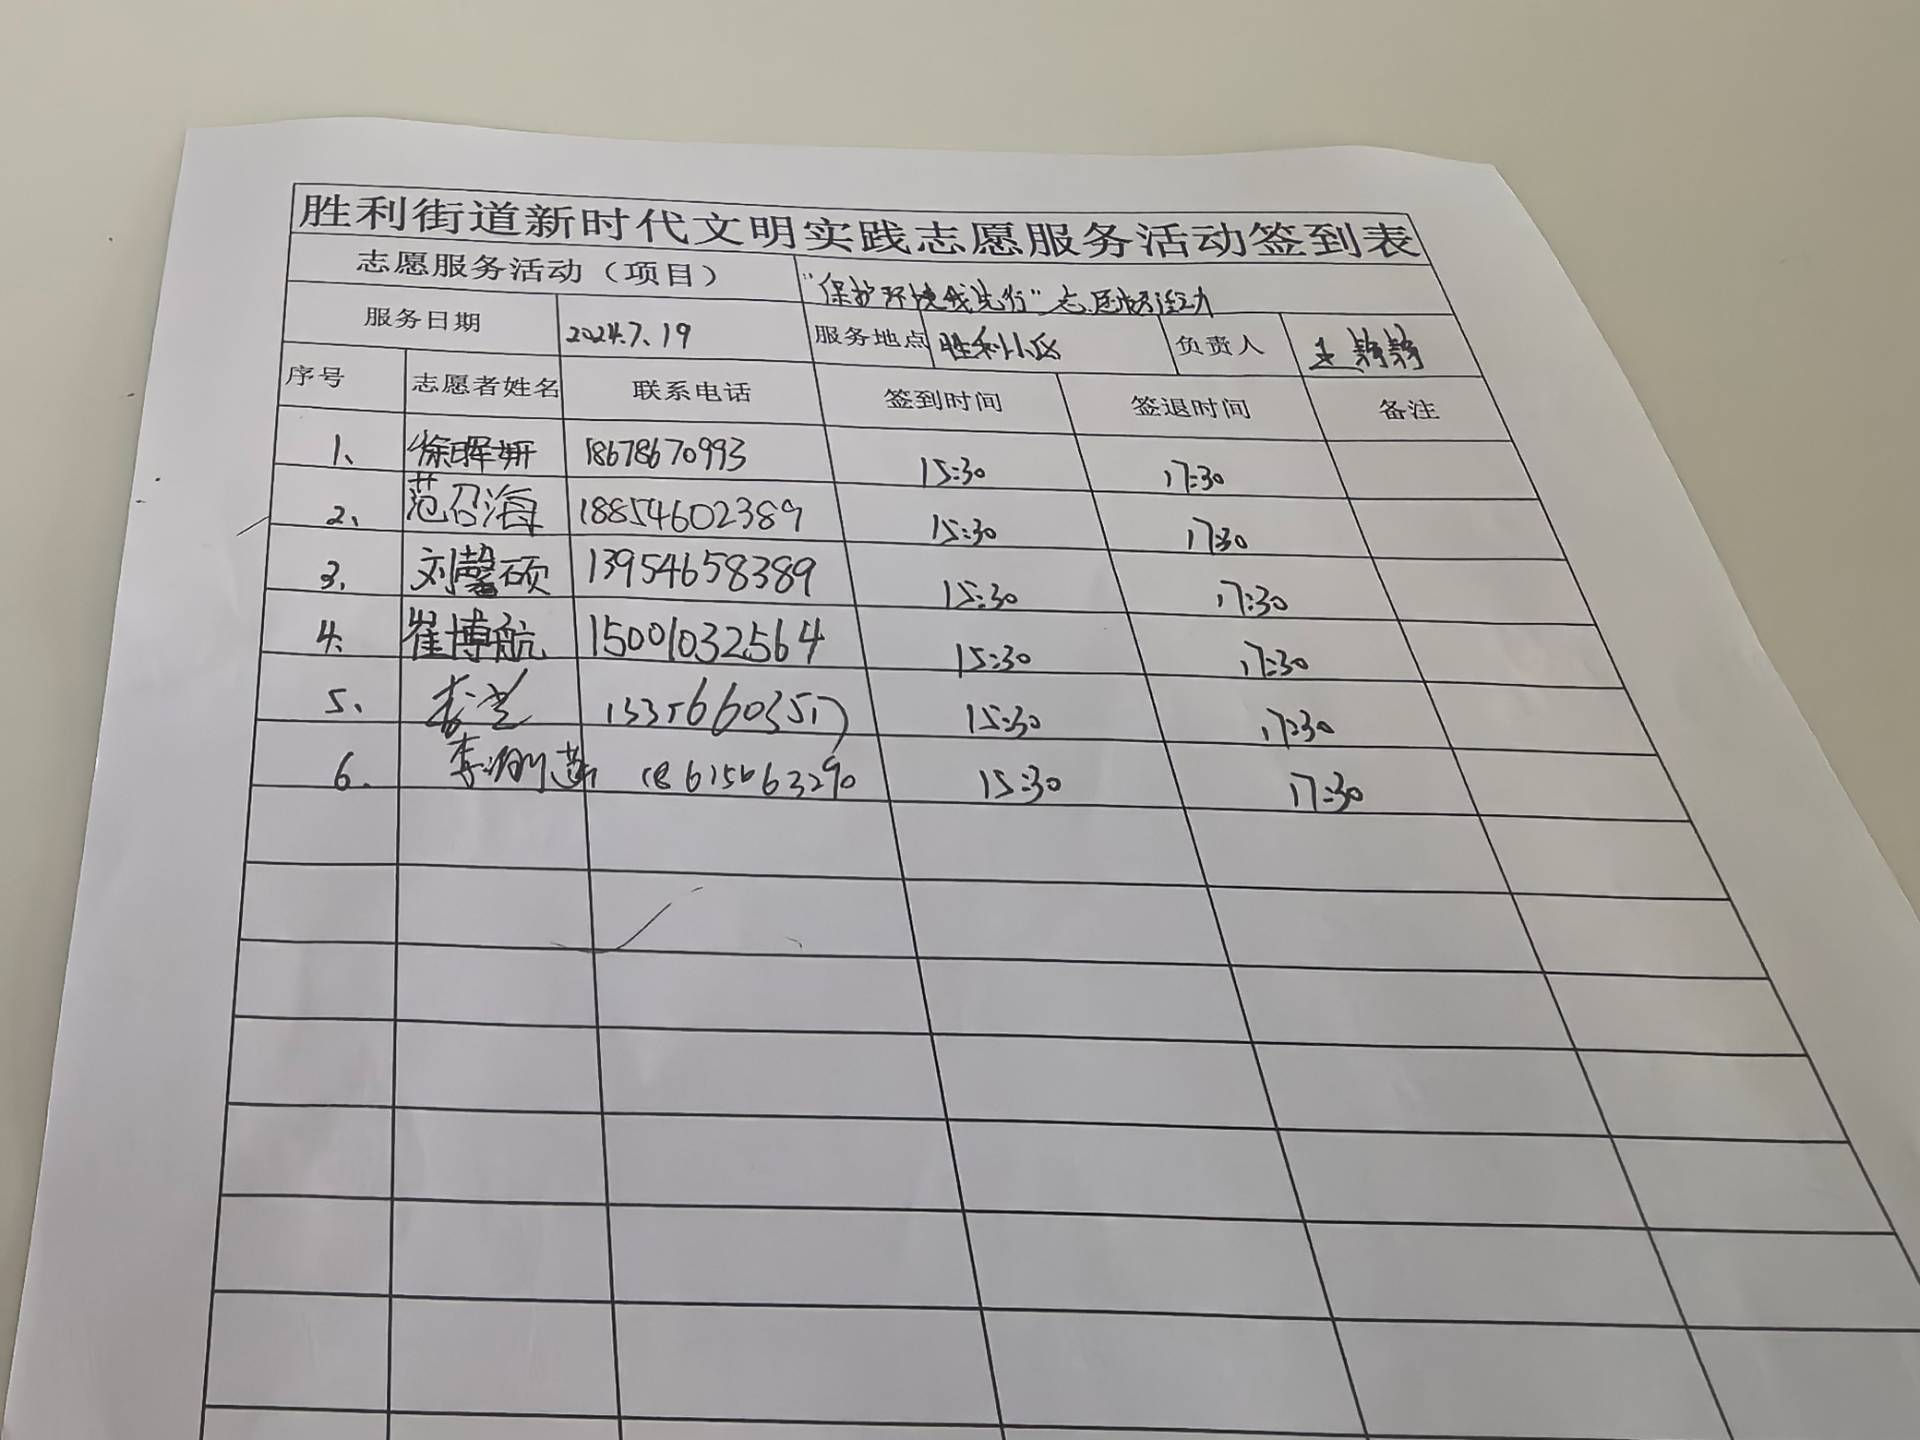 胜利街道新时代文明实践志愿服务活动签到表
志愿服务活动（项目） “保护环境我先行”志愿服务活动
服务日期 2024.7.19 服务地点 胜利小区 负责人 王
序号 志愿者姓名 联系电话 签到时间 签退时间 备注
1、 徐晖妍 18678670993 15:30 17:30
2、 范召海 18854602389 15:30 17:30
3、 刘馨硕 13954658389 15:30 17:30
4、 崔博航 15001032564 15:30 17:30
5、 15:30 17:30
6. 李 15:30 17:30